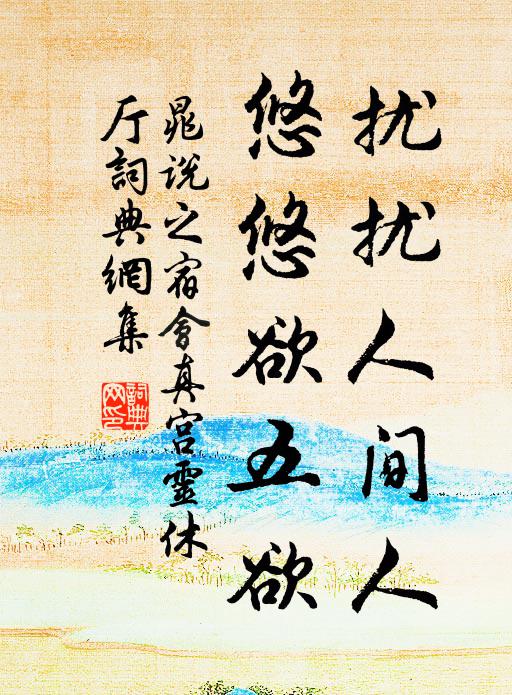 扰扰人间人
悠悠欲五欲
晁说之宿會真宫靈休
厅詞典網集
詞典
网印